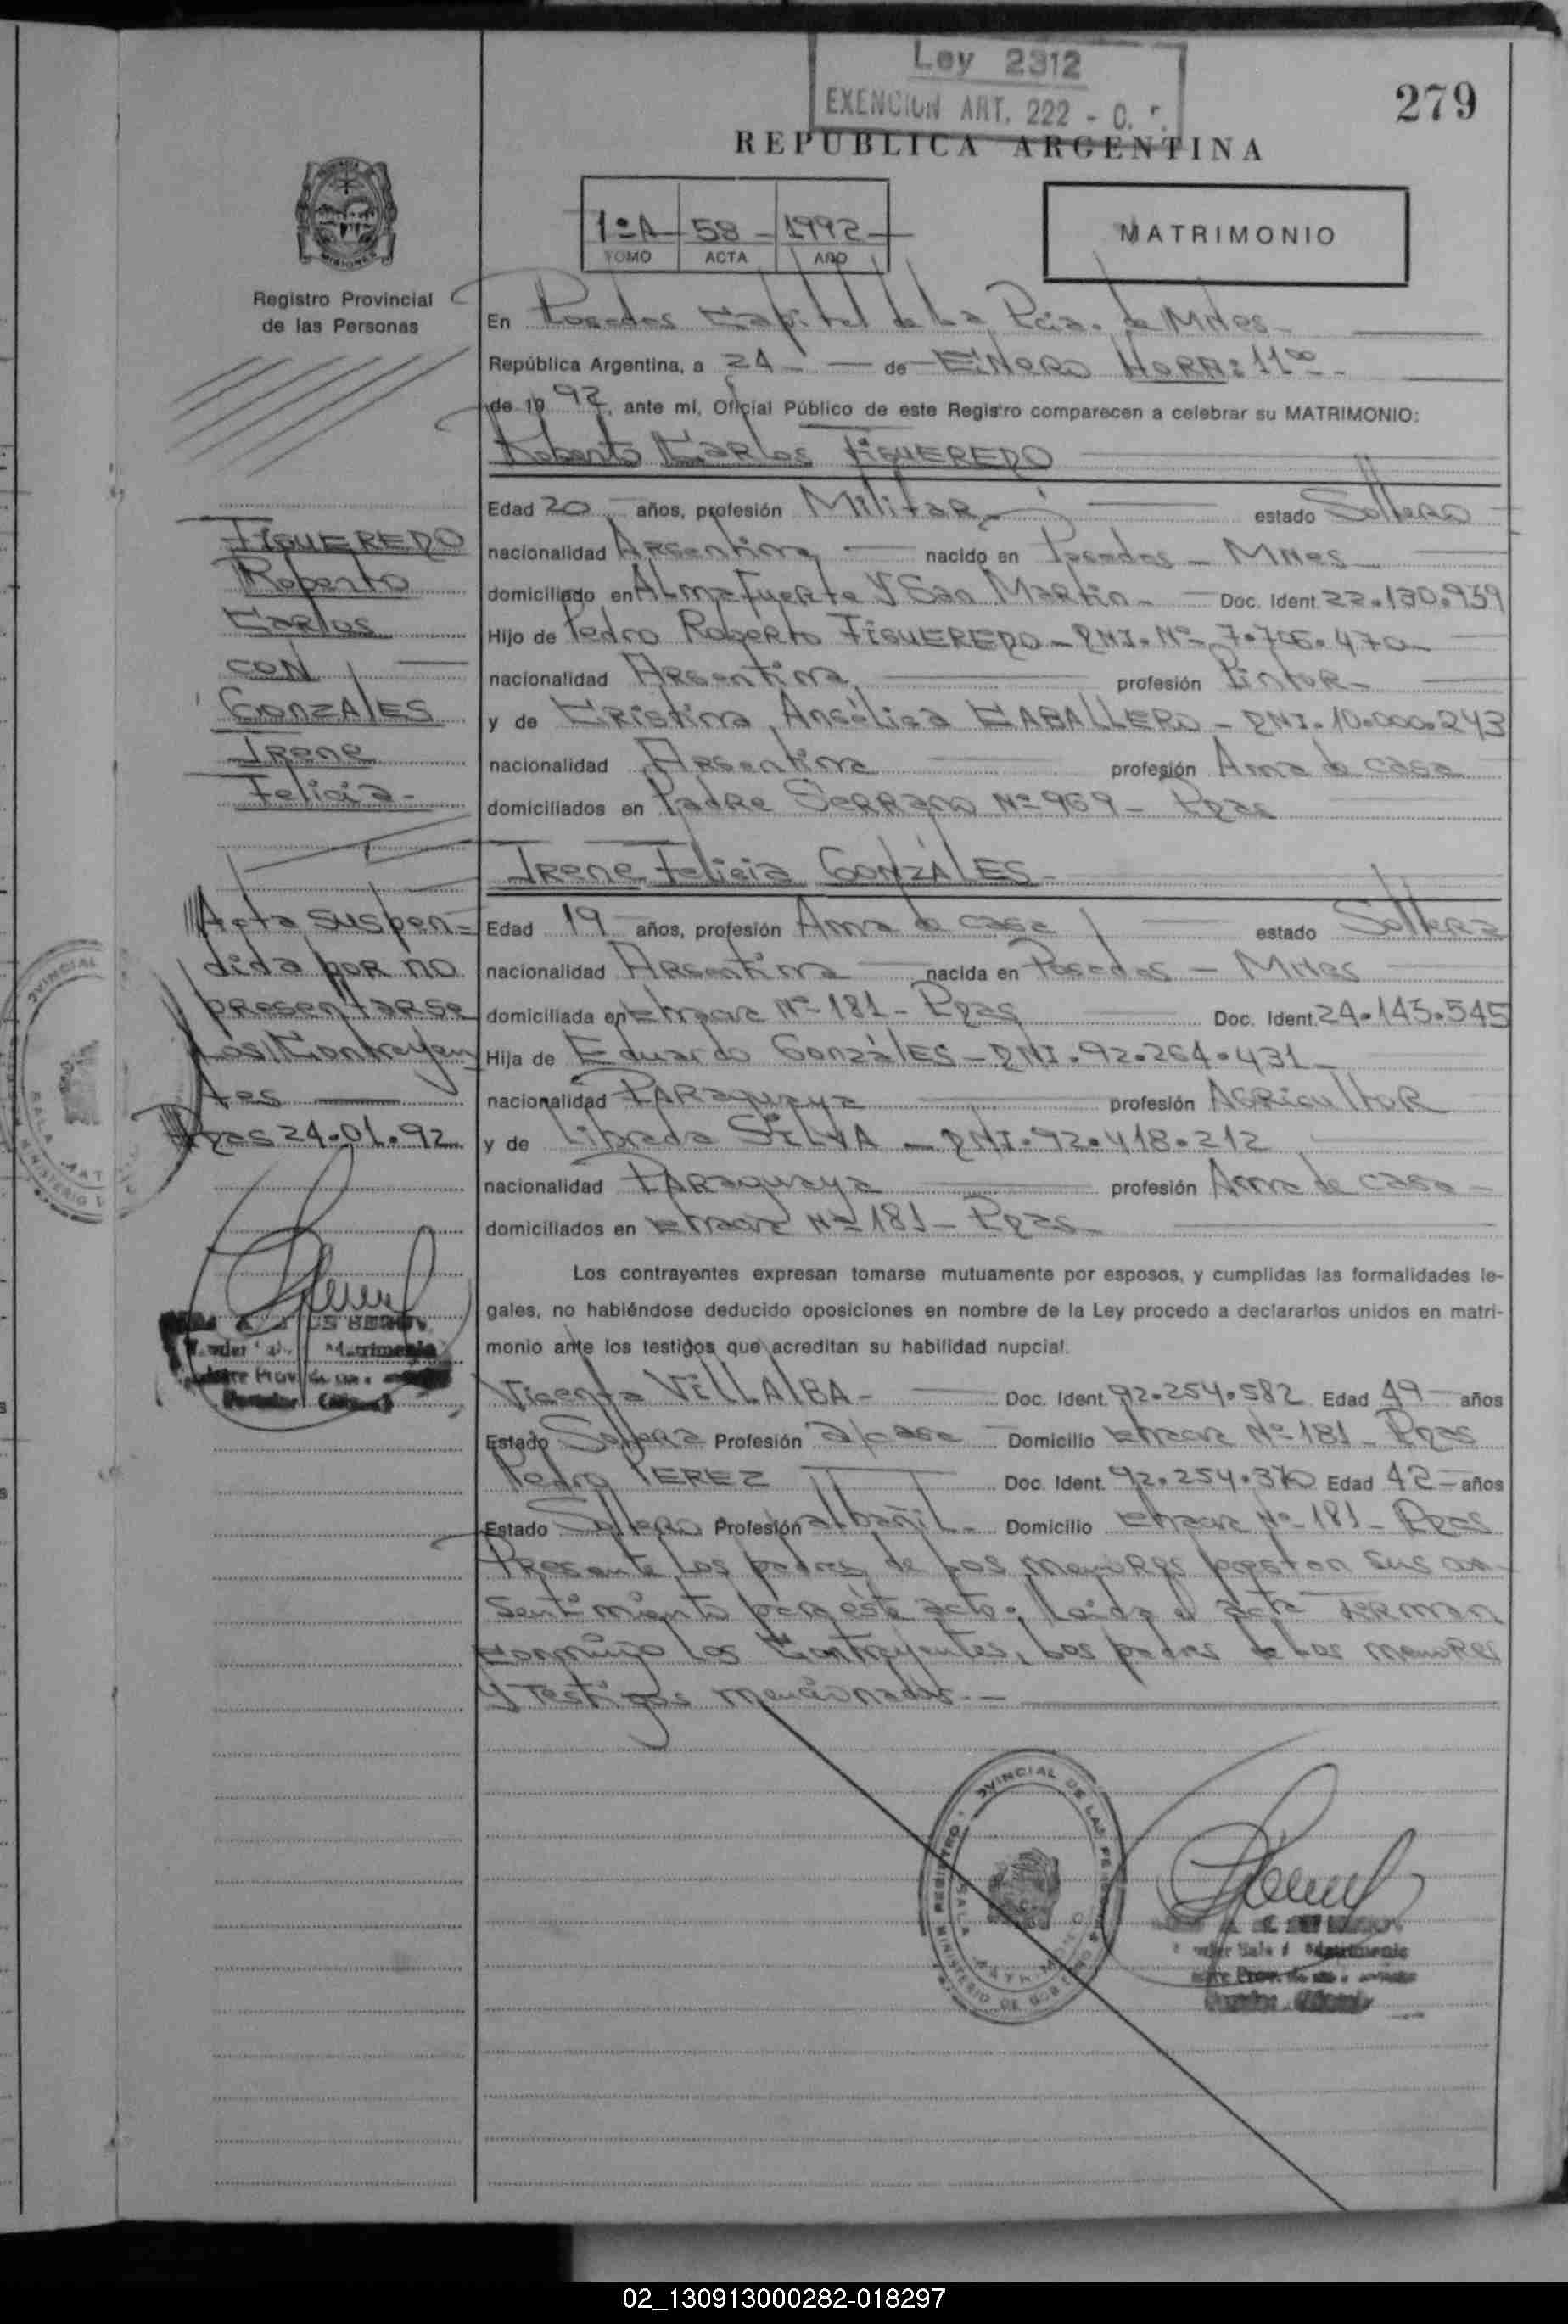 Ley 2312
EXENCION ART. 222 - C.
279
REPUBLICA ARGENTINA
1ºA 58 1992
TOMO ACTA AÑO
MATRIMONIO
Registro Provincial
de las Personas
En Posadas Capital de La Pcia. de Mnes
República Argentina, a 24 de ENERO HORA: 11ºº
de 1992, ante mí, Oficial Público de este Registro comparecen a celebrar su MATRIMONIO:
Roberto Carlos FIGUEREDO
Edad 20 años, profesión Militar estado Soltero
nacionalidad Argentina nacido en Posadas - Mnes
domiciliado en Almafuerte y San Martin Doc. Ident. 22.130.939
Hijo de Pedro Roberto FIGUEREDO - DNI. Nº 7.706.470
nacionalidad Argentina profesión Pintor
y de Cristina Angélica CABALLERO - DNI. 10.000.243
nacionalidad Argentina profesión Ama de casa
domiciliados en Padre Serrano Nº 969 - Pdas
Irene Felicia GONZÁLES
Edad 19 años, profesión Ama de casa estado Soltera
nacionalidad Argentina nacida en Posadas - Mnes
domiciliada en Nº 181 - Pdas Doc. Ident. 24.143.545
Hija de Eduardo GonzálES - DNI. 92.264.431
nacionalidad PARaguaya profesión Agricultor
y de Librada SILVA - DNI. 92.418.212
nacionalidad PARaguaya profesión Ama de casa
domiciliados en Nº 181 - Pdas
Los contrayentes expresan tomarse mutuamente por esposos, y cumplidas las formalidades le-
gales, no habiéndose deducido oposiciones en nombre de la Ley procedo a declararlos unidos en matri-
monio ante los testigos que acreditan su habilidad nupcial.
Vicenta VILLALBA - Doc. Ident. 92.254.582 Edad 49 años
Estado Soltera Profesión a/casa Domicilio Nº 181 - Pdas
Pedro PEREZ Doc. Ident. 92.254.370 Edad 42 años
Estado Soltero Profesión albañil Domicilio Nº 181 - Pdas
Presente los padres de los menores prestan sus con-
sentimiento para éste acto. Leida el acta Firman
conmigo los Contrayentes, los padres de los menores
y testigos mencionados.
FIGUEREDO
Roberto
Carlos
CON
GONZALES
Irene
Felicia
Acta suspen=
dida por no
presentarse
Los Contrayen
tes
Pdas 24.01.92
02_130913000282-018297